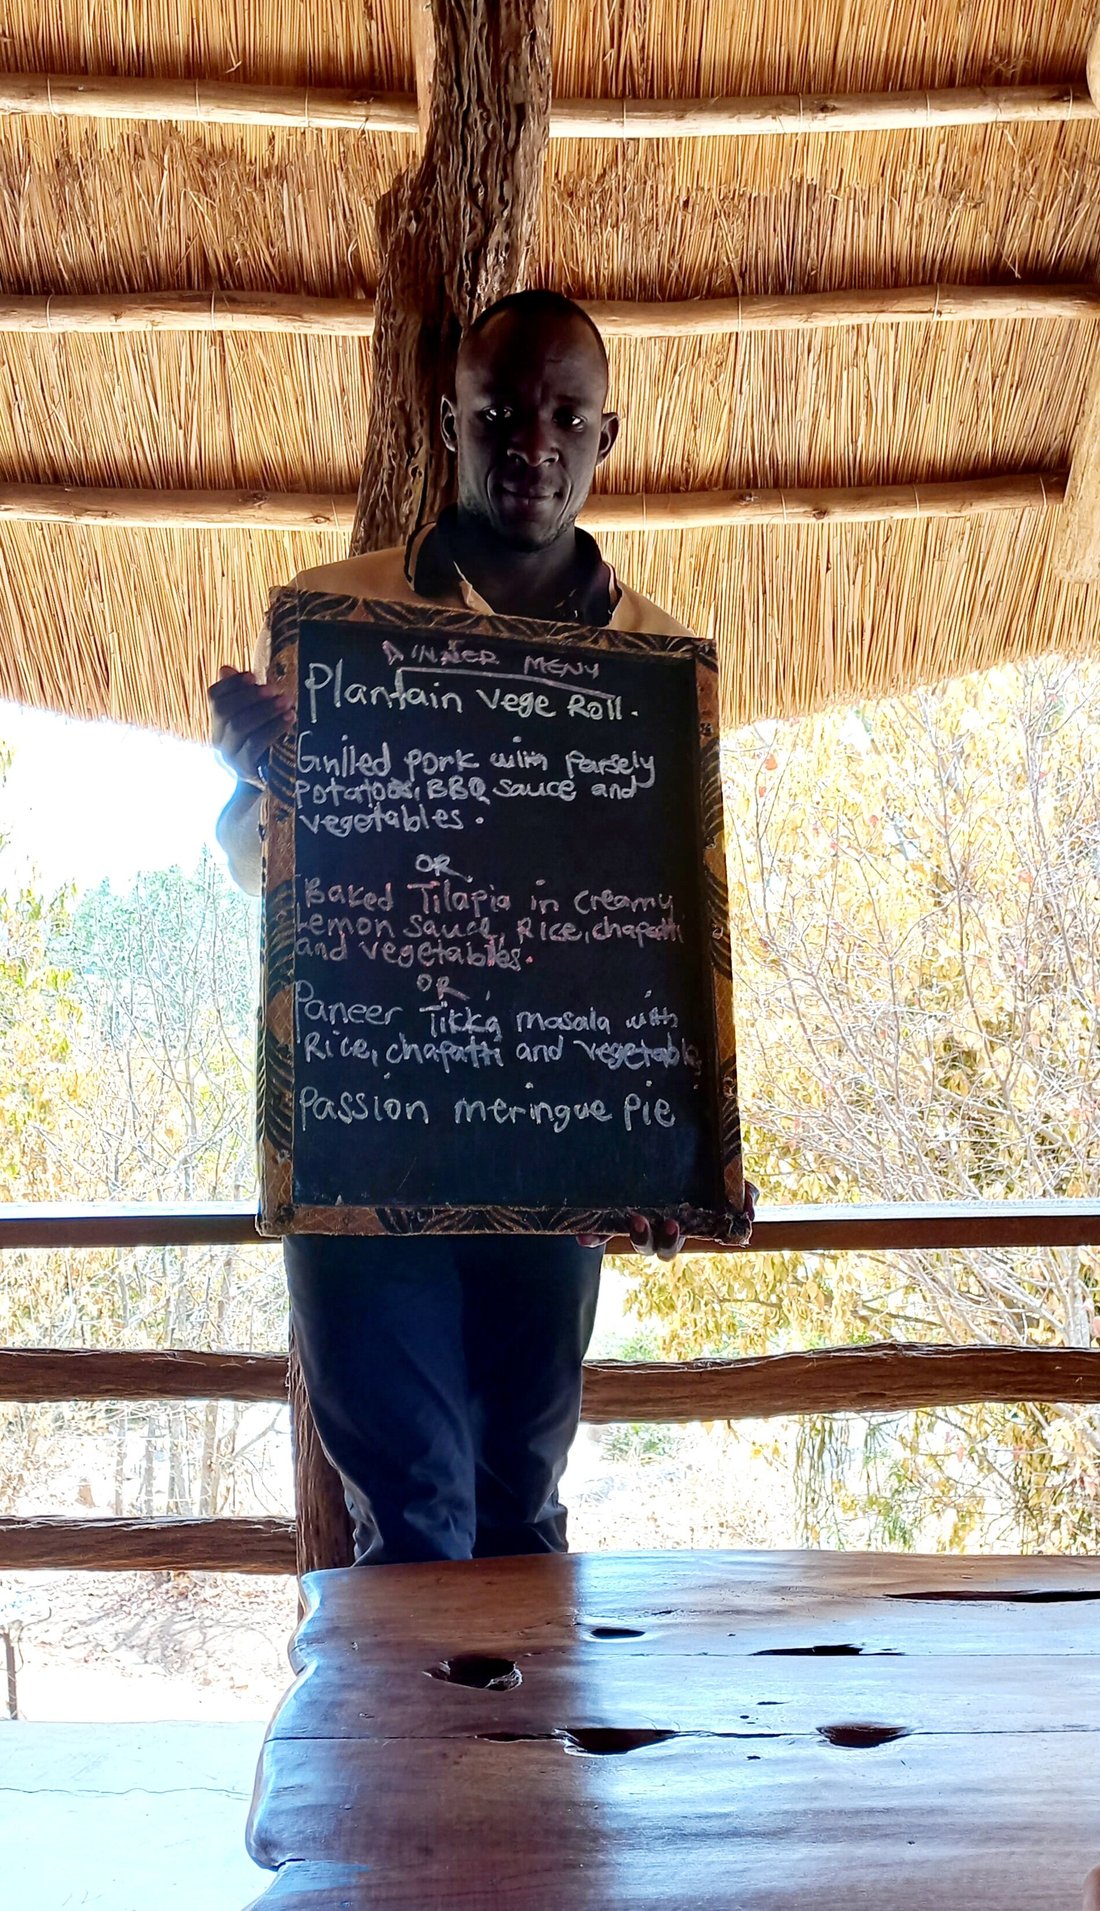 DINNER MENU
Plantain Vege Roll.
Grilled pork with parsely
potatoes, BBQ sauce and
vegetables.
OR
Baked Tilapia in creamy
Lemon Sauce, Rice, chapatti
and vegetables.
OR
Paneer Tikka masala with
Rice, chapatti and vegetable
Passion meringue pie